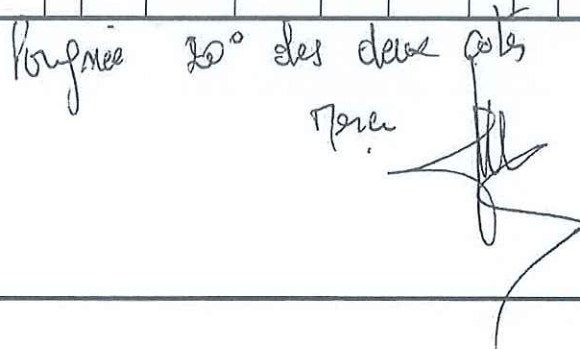 Poignée 20° des deux cotés
Merci